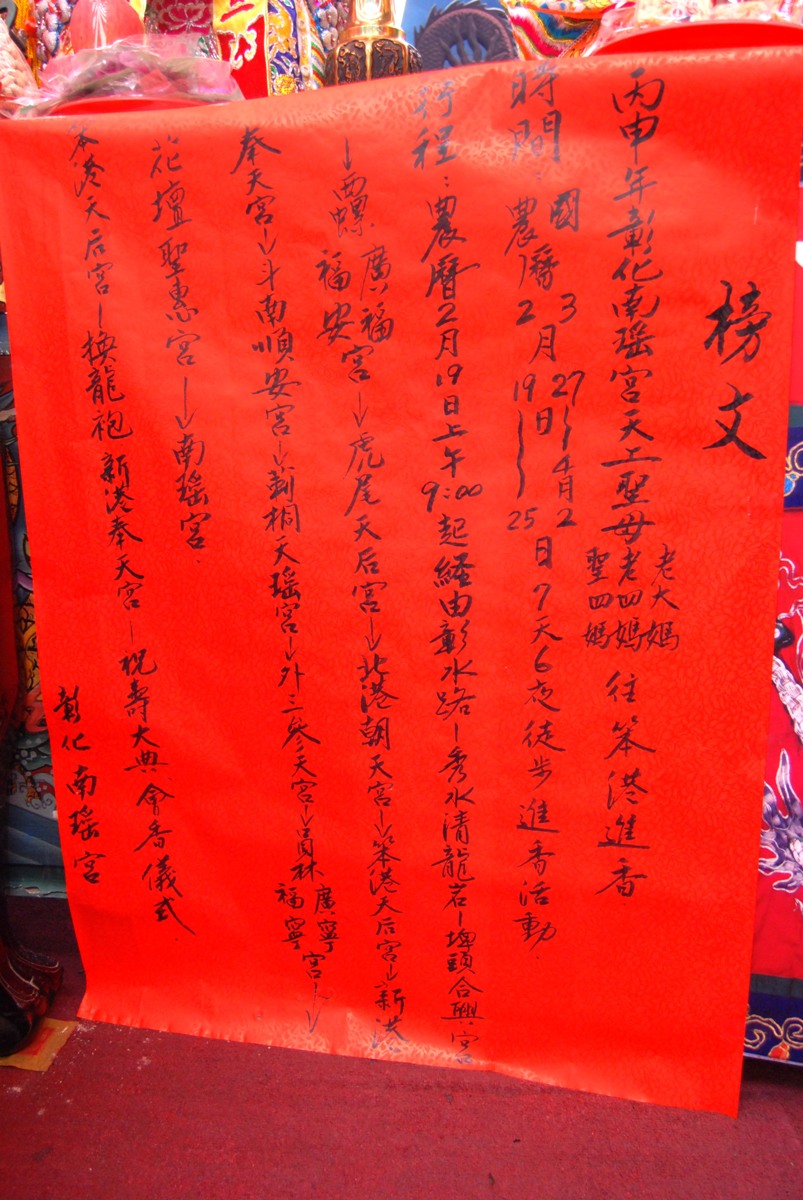 榜文
丙申年彰化南瑤宮天上聖母老大媽老四媽聖四媽往笨港進香
時間：國農曆3 27～4月2 2月19日～25日7天6夜徒步進香活動.
行程：農曆2月19日上午9:00起経由彰水路－秀水清龍岩－埤頭合興宮
→西螺廣福福安宮→虎尾天后宮→北港朝天宮→笨港天后宮→新港
奉天宮→斗南順安宮→莿桐天瑤宮→外三參天宮→員林廣寧福寧宮→
花壇聖惠宮→南瑤宮.
笨港天后宮－換龍袍 新港奉天宮－祝壽大典.會香儀式.
彰化南瑤宮